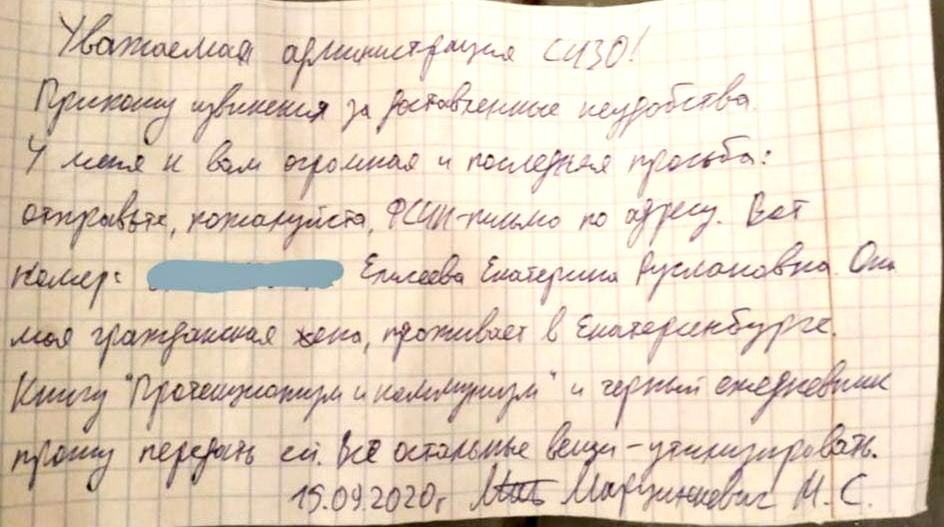 Уважаемая администрация СИЗО!
Приношу извинения за доставленные неудобства.
У меня к вам огромная и последняя просьба:
отправьте, пожалуйста, ФСИН-письмо по адресу. Вот
номер: Елисеева Екатерина Руслановна. Она
моя гражданская жена, проживает в Екатеринбурге.
Книгу "Протекционизм и коммунизм" и черный ежедневник
прошу передать ей. Все остальные вещи - утилизировать.
15.09.2020г Марцинкевич М.С.